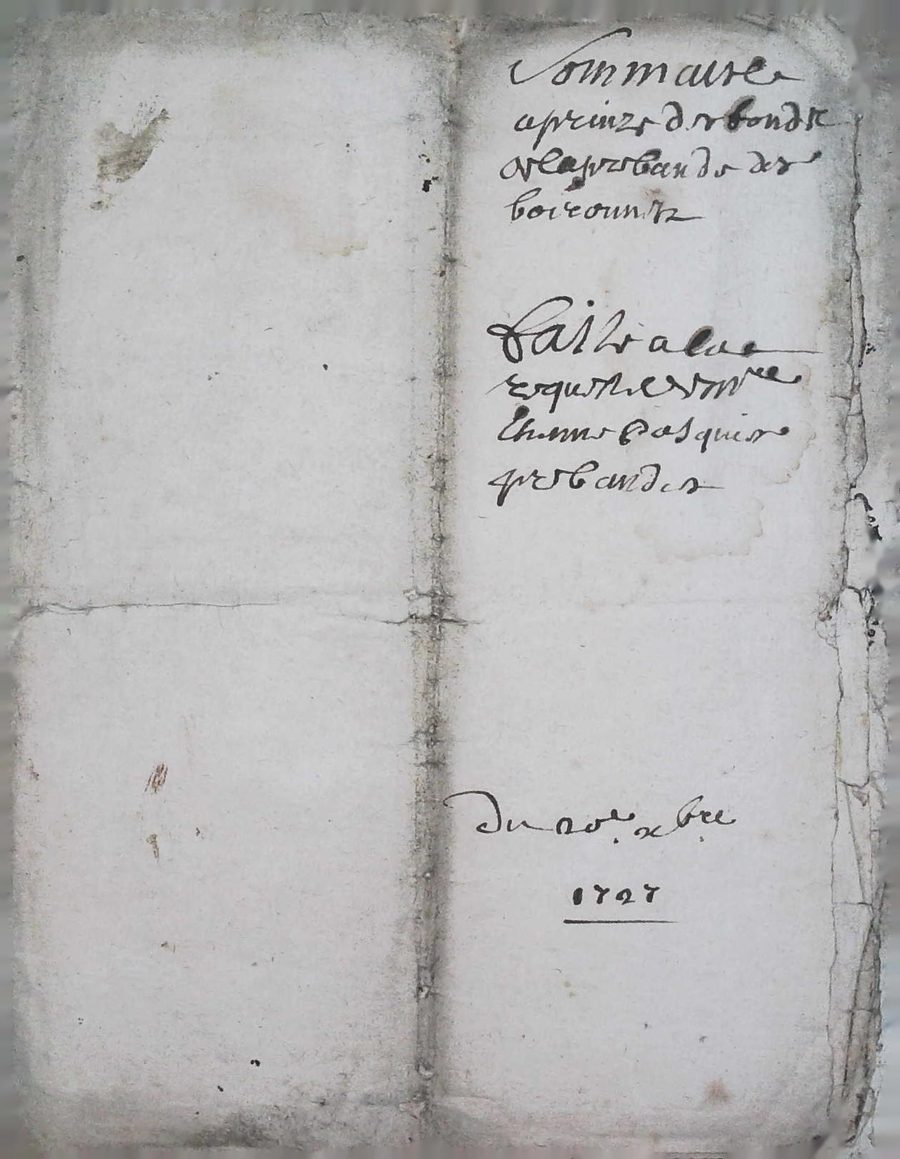 Sommaire
aprinze des fonds
de la prebande des
boironnet
faitte a la
requeste de Mre
Etienne Pasquier
prebandier
du 20e xbre
1727